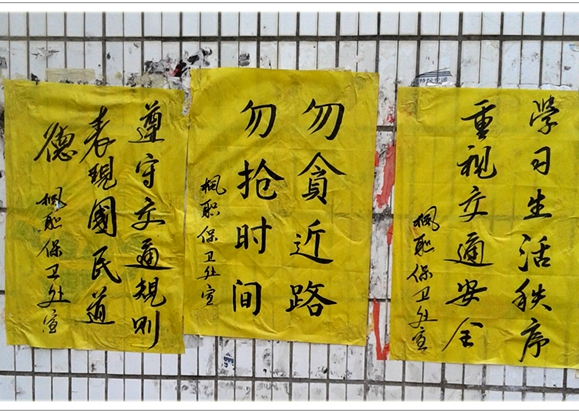 遵守交通規则
表現國民道
德
枫职保卫处宣
勿貪近路
勿抢时间
枫职保卫处宣
学习生活秩序
重视交通安全
枫职保卫处宣